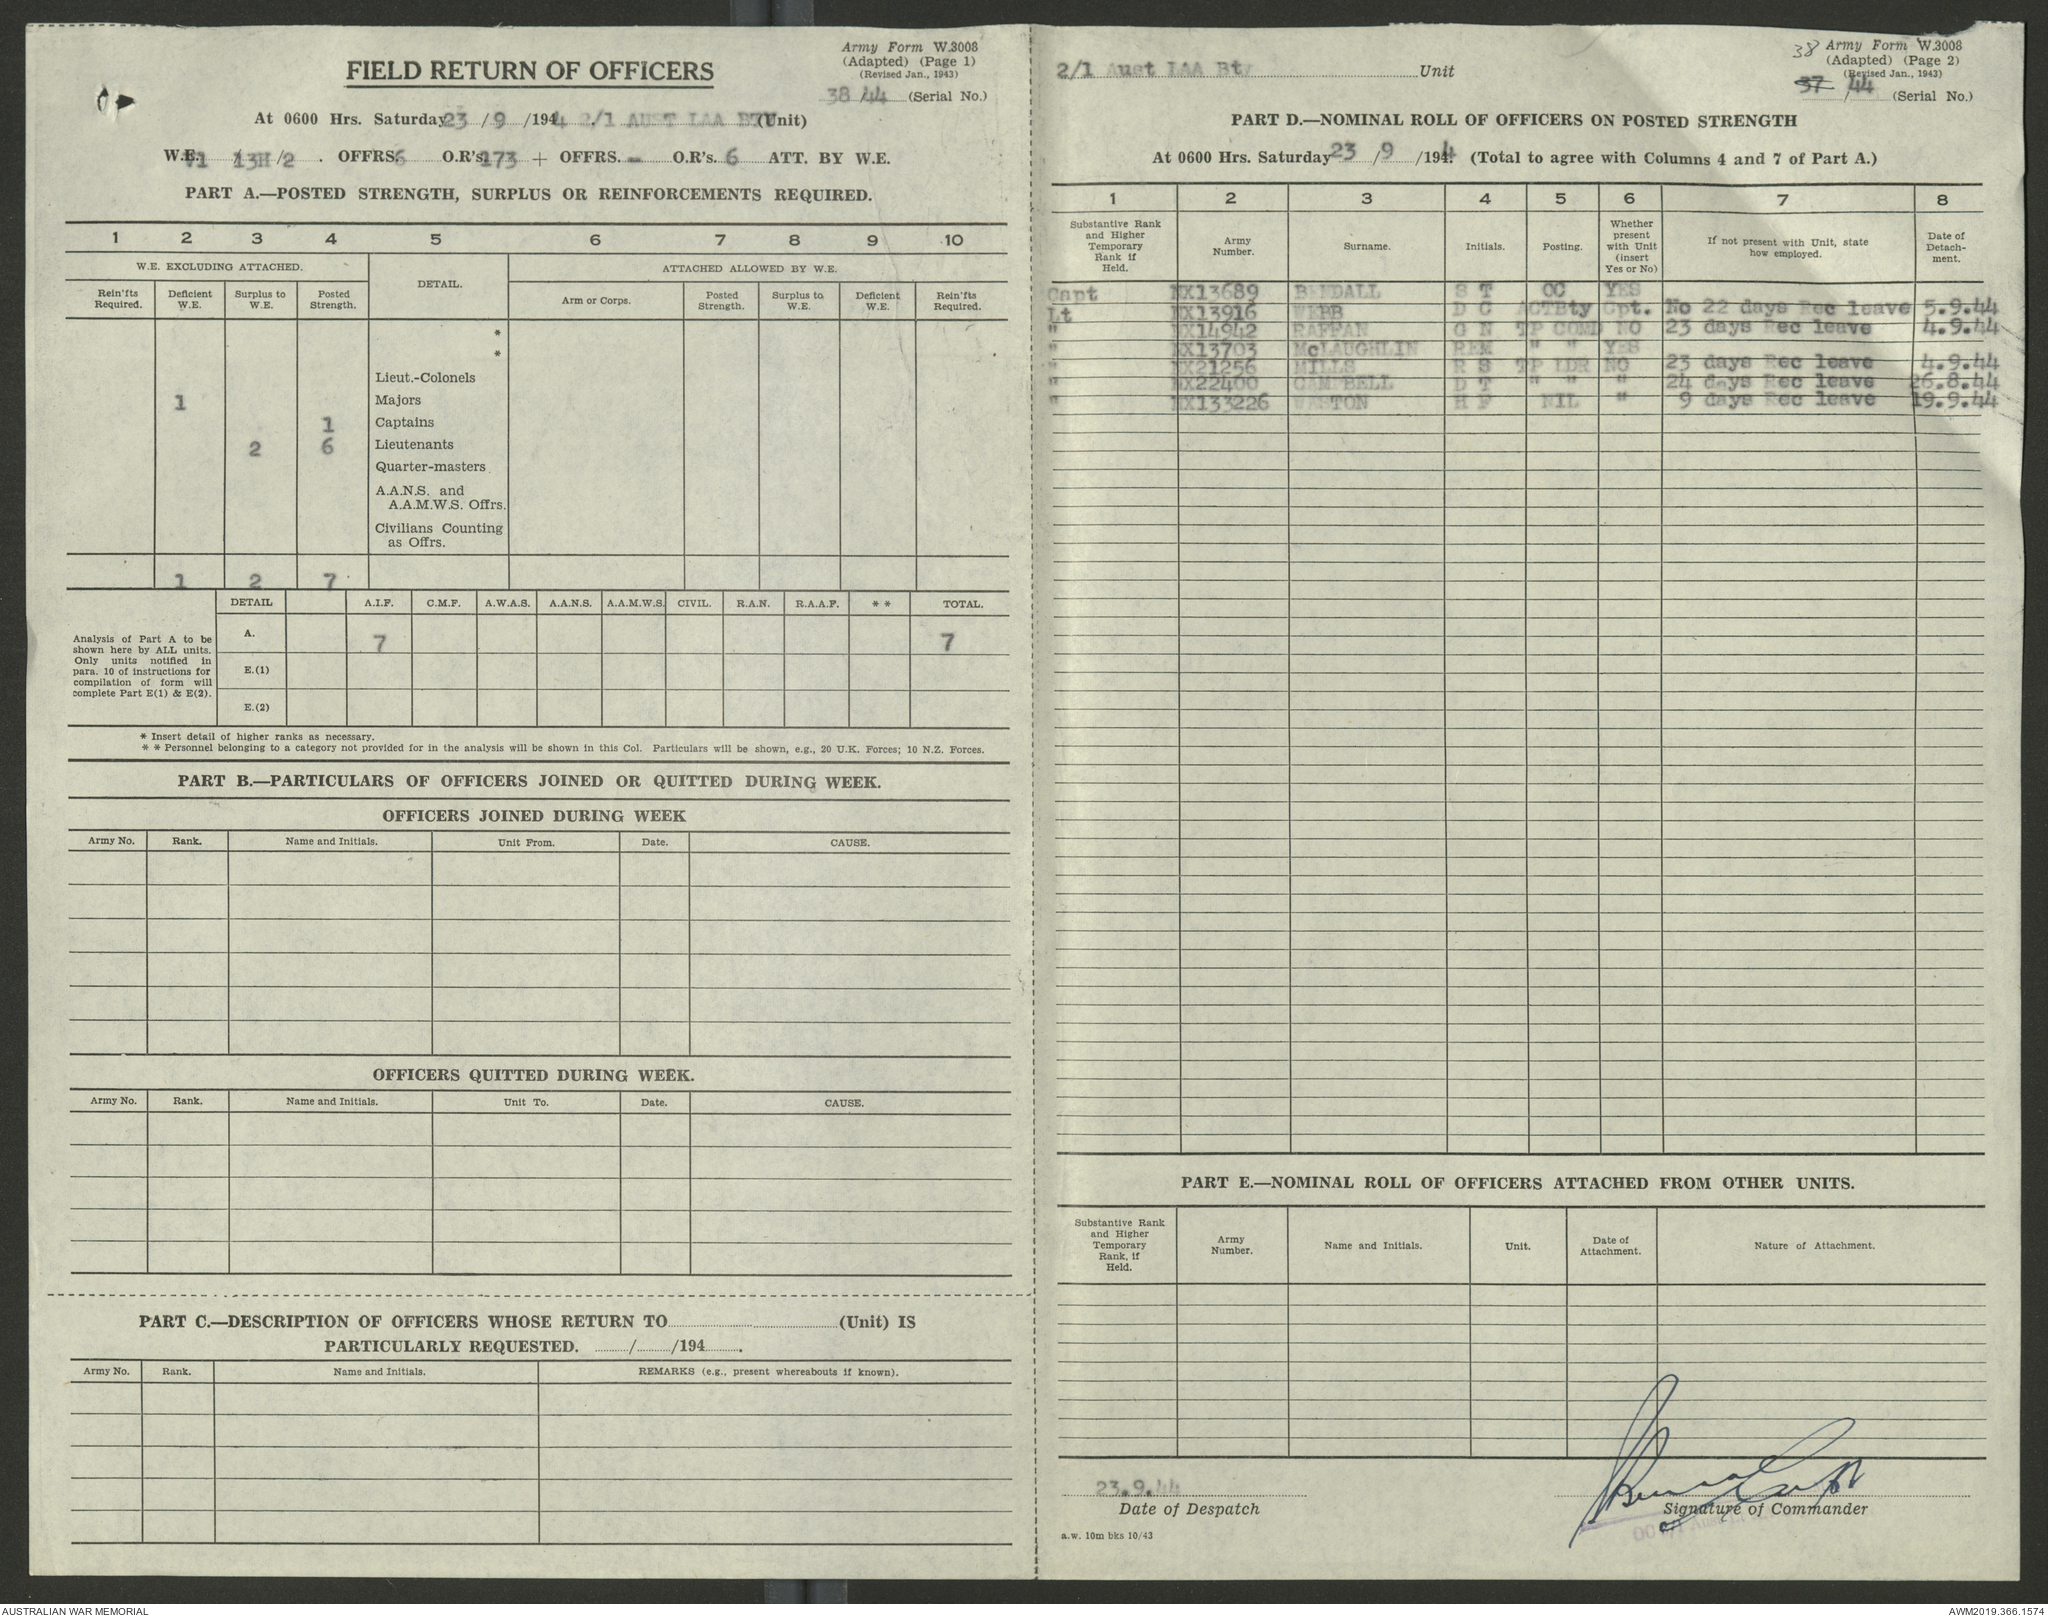 Army Form W.3008
(Adapted) (Page 1)
(Revised Jan., 1943)
FIELD RETURN OF OFFICERS
38/44 (Serial No.)
At 0600 Hrs. Saturday 23/9/1944 2/1 AUST LAA BTY (Unit)
W.E. VI /13H/2. OFFRS. 6 O.R's. 173 + OFFRS. - O.R's. 6 ATT. BY W.E.
PART A.—POSTED STRENGTH, SURPLUS OR REINFORCEMENTS REQUIRED.
1 2 3 4 5 6 7 8 9 10
W.E. EXCLUDING ATTACHED. DETAIL. ATTACHED ALLOWED BY W.E.
Rein'fts Required. Deficient W.E. Surplus to W.E. Posted Strength. Arm or Corps. Posted Strength. Surplus to W.E. Deficient W.E. Rein'fts Required.
*
*
Lieut.-Colonels
1 Majors
1 Captains
2 6 Lieutenants
Quarter-masters
A.A.N.S. and
A.A.M.W.S. Offrs.
Civilians Counting
as Offrs.
1 2 7
DETAIL A.I.F. C.M.F. A.W.A.S. A.A.N.S. A.A.M.W.S. CIVIL. R.A.N. R.A.A.F. * * TOTAL.
Analysis of Part A to be
shown here by ALL units.
Only units notified in
para. 10 of instructions for
compilation of form will
complete Part E(1) & E(2).
A. 7 7
E.(1)
E.(2)
* Insert detail of higher ranks as necessary.
* * Personnel belonging to a category not provided for in the analysis will be shown in this Col. Particulars will be shown, e.g., 20 U.K. Forces; 10 N.Z. Forces.
PART B.—PARTICULARS OF OFFICERS JOINED OR QUITTED DURING WEEK.
OFFICERS JOINED DURING WEEK
Army No. Rank. Name and Initials. Unit From. Date. CAUSE.
OFFICERS QUITTED DURING WEEK.
Army No. Rank. Name and Initials. Unit To. Date. CAUSE.
PART C.—DESCRIPTION OF OFFICERS WHOSE RETURN TO (Unit) IS
PARTICULARLY REQUESTED. / /194 .
Army No. Rank. Name and Initials. REMARKS (e.g., present whereabouts if known).
38 Army Form W.3008
(Adapted) (Page 2)
(Revised Jan., 1943)
2/1 Aust LAA Bty Unit
37 /44 (Serial No.)
PART D.—NOMINAL ROLL OF OFFICERS ON POSTED STRENGTH
At 0600 Hrs. Saturday 23/9/1944 (Total to agree with Columns 4 and 7 of Part A.)
1 2 3 4 5 6 7 8
Substantive Rank and Higher Temporary Rank if Held. Army Number. Surname. Initials. Posting. Whether present with Unit (insert Yes or No) If not present with Unit, state how employed. Date of Detach-ment.
Capt NX13689 BENDALL S T OC YES
Lt NX13916 WEBB D C ACTBty Cpt. No 22 days Rec leave 5.9.44
" NX14942 RAFFAN G N TP COMD NO 23 days Rec leave 4.9.44
" NX13703 McLAUGHLIN REM " " YES
" NX21256 MILLS R S TP LDR NO 23 days Rec leave 4.9.44
" NX22400 CAMPBELL D T " " " 24 days Rec leave 26.8.44
" NX133226 WESTON H F NIL " 9 days Rec leave 19.9.44
PART E.—NOMINAL ROLL OF OFFICERS ATTACHED FROM OTHER UNITS.
Substantive Rank and Higher Temporary Rank, if Held. Army Number. Name and Initials. Unit. Date of Attachment. Nature of Attachment.
23.9.44
Date of Despatch Signature of Commander
OC
a.w. 10m bks 10/43
AUSTRALIAN WAR MEMORIAL AWM2019.366.1574